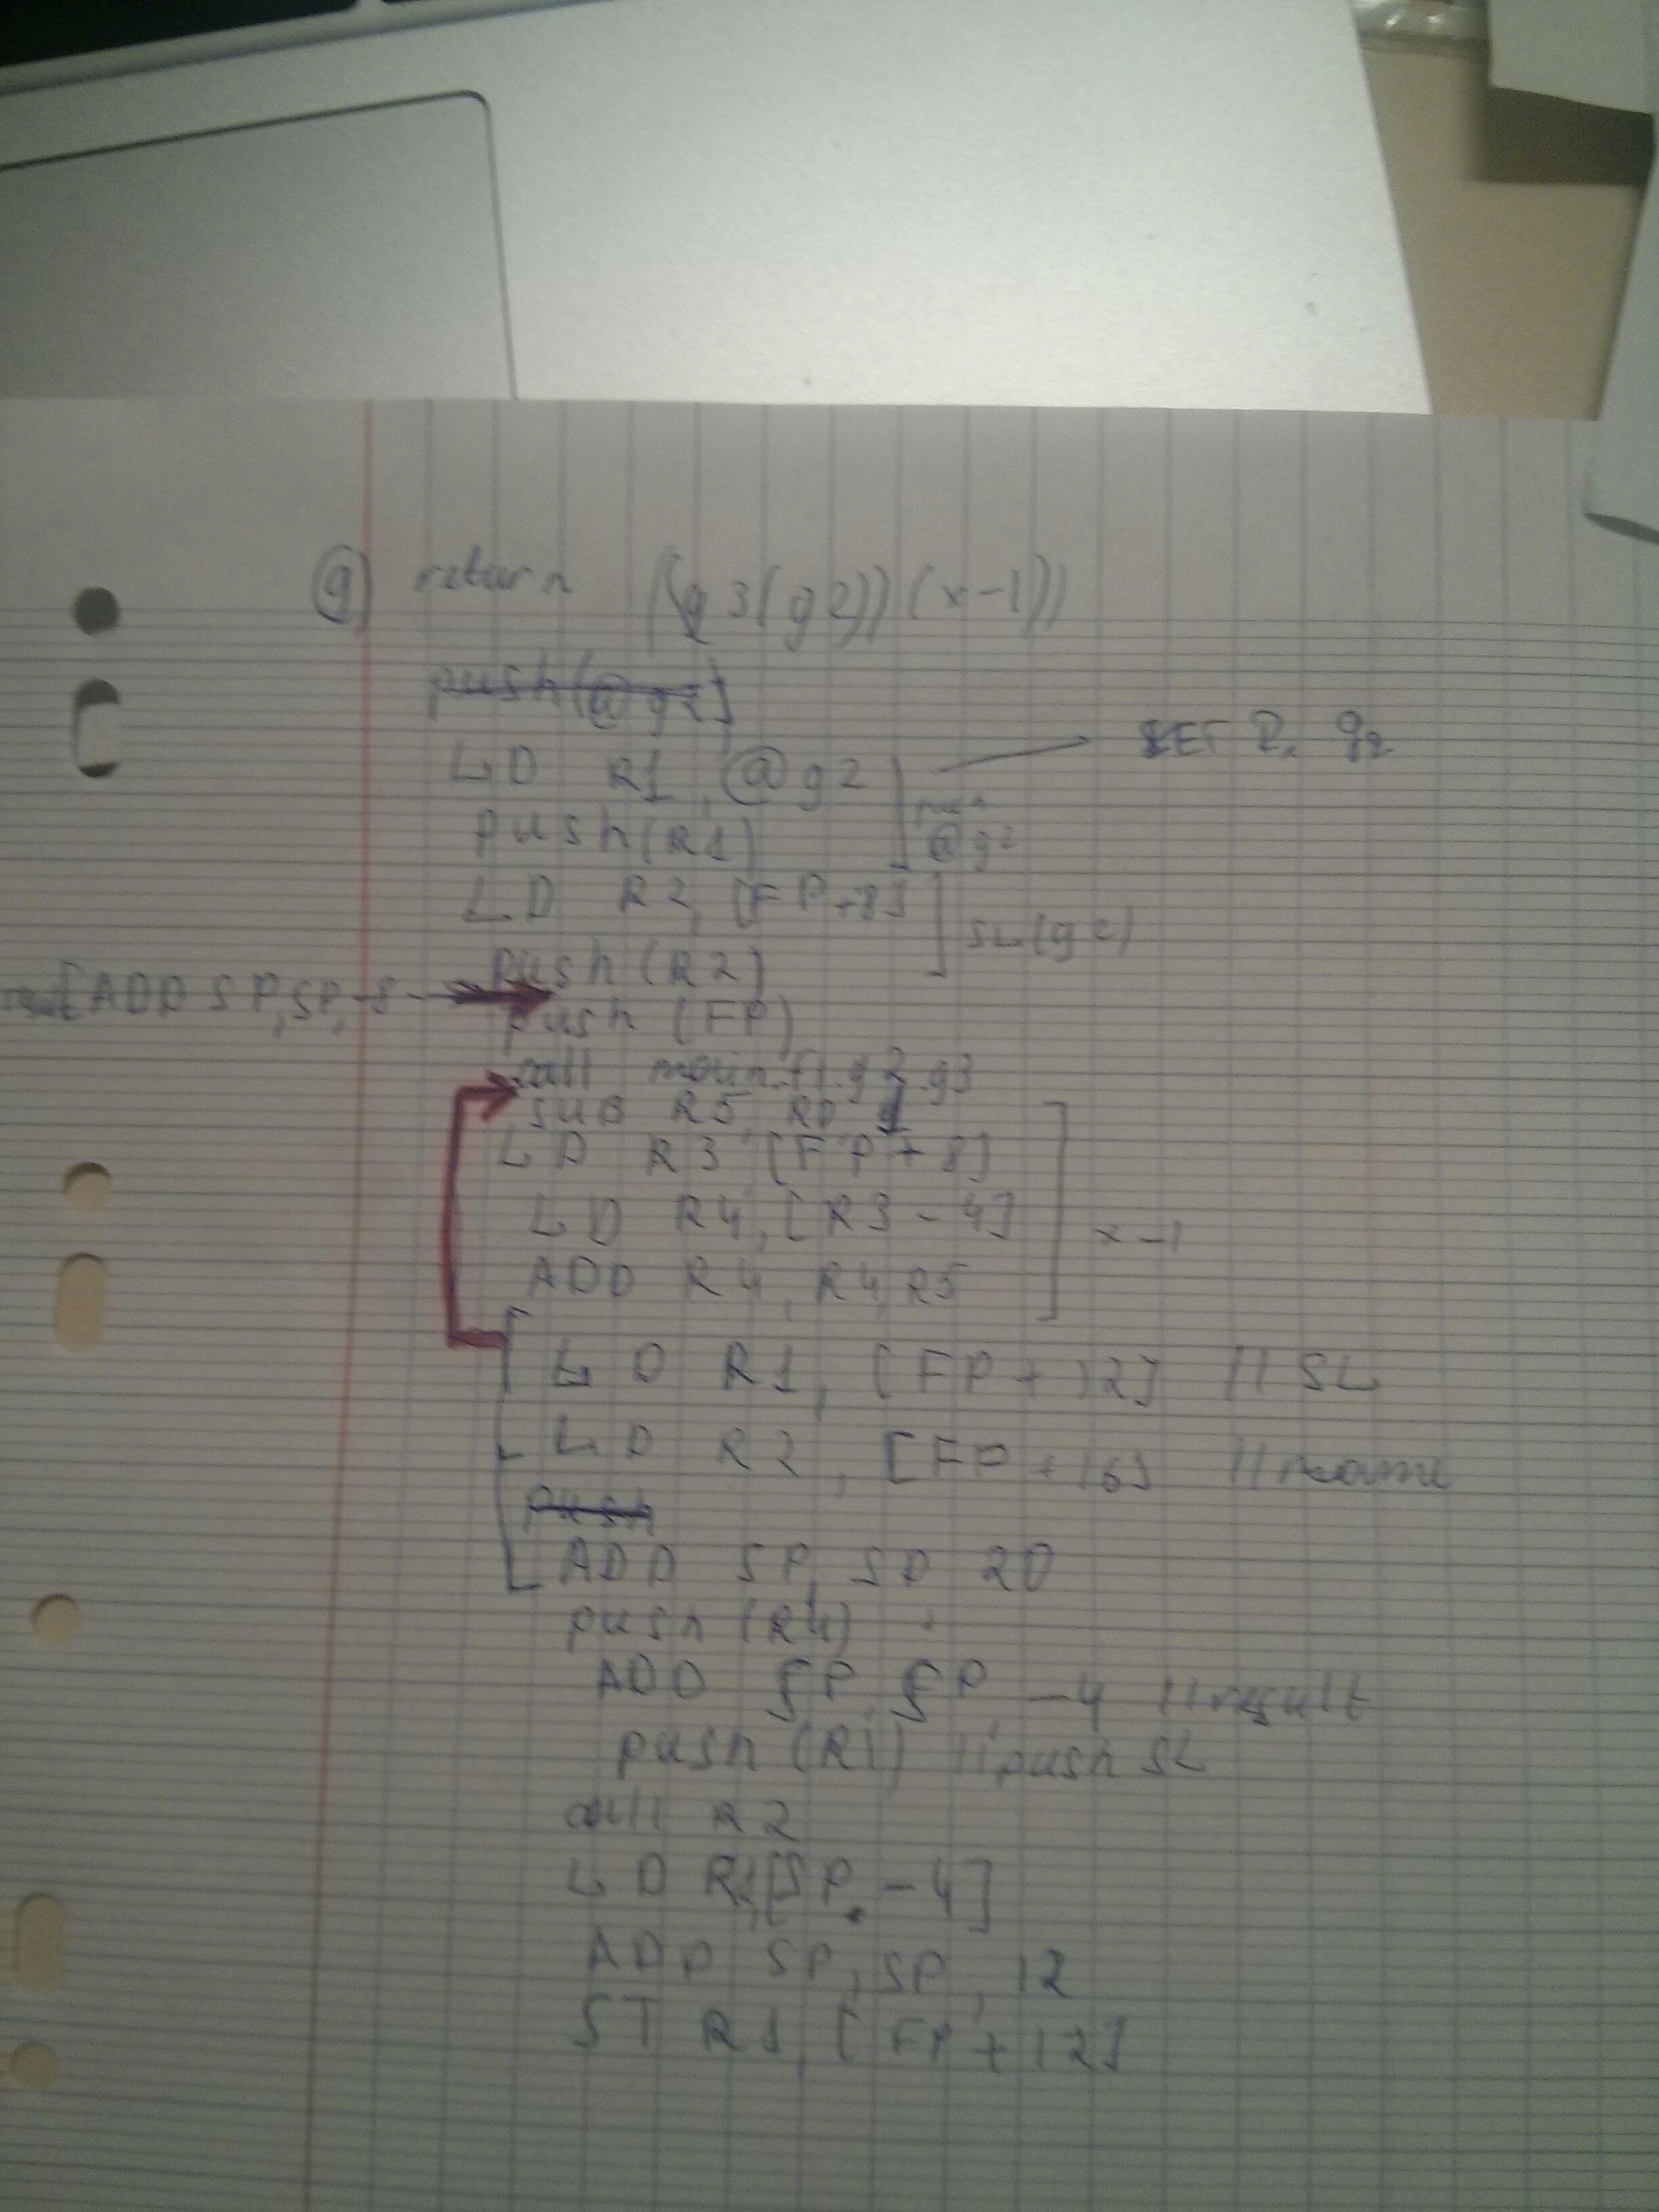 g) return ((g3(g2))(x-1))
push(@g2)
LD R1, @g2
SET R, g2
push(R1)
push @g2
LD R2, [FP+8]
SL(g2)
push(R2)
ADD SP, SP, -8
push(FP)
call main.f1.g2.g3
SUB R5, R0, 1
LD R3, [FP+8]
LD R4, [R3-4]
x-1
ADD R4, R4, R5
LD R1, [FP+12] // SL
LD R2, [FP+16] //
push
ADD SP, SP 20
push(R4)
ADD SP, SP -4 // result
push(R1) // push SL
call R2
LD R1, [SP-4]
ADD SP, SP, 12
ST R1, [FP+12]